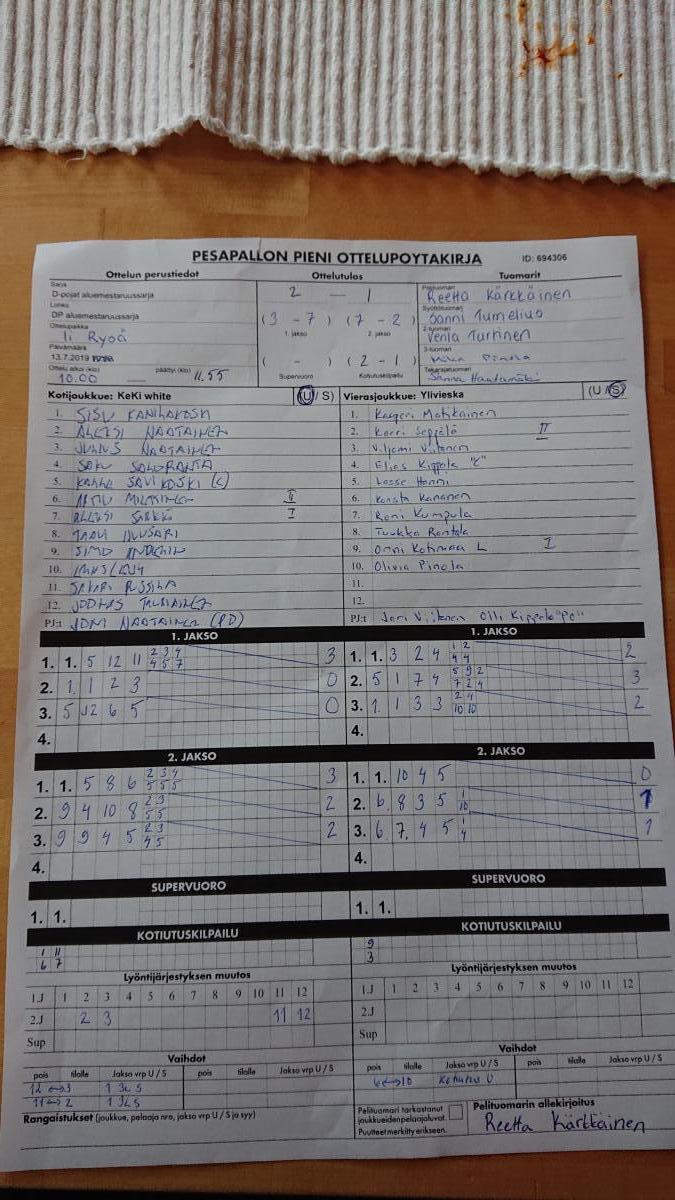 PESAPALLON PIENI OTTELUPOYTAKIRJA ID: 694306
Ottelun perustiedot Ottelutulos Tuomarit
Sarja
D-pojat aluemestaruussarja
Lohko
DP aluemestaruussarja
Ottelupaikka
Ii Ryöä
Päivämäärä
13.7.2019
Ottelu alkoi (klo) päättyi (klo)
10.00 11.55
2 — 1
(3 - 7) (7 - 2)
1. jakso 2. jakso
( - ) (2 - 1)
Supervuoro Kotiutuskilpailu
Pelituomari
Reetta Kärkkäinen
Syöttötuomari
Sanni Tumelius
2-tuomari
Venla Turtinen
3-tuomari
Pinola
Takarajatuomari
Kotijoukkue: KeKi white (U / S)
1.
2. ALEKSI NAATAINEN
3. JULIUS NAATAINEN
4. SAKU SALORANTA
5. SAVIKOSKI (C)
6. II
7. ALEKSI I
8.
9. SIMO
10.
11.
12.
PJ:t JONI NAATAINEN (PD)
Vierasjoukkue: Ylivieska (U / S)
1. Kasperi Matikainen
2. Karri Seppälä II
3. Viljami Viitanen
4. Elias Kippola "C"
5. Lasse Hanni
6. Konsta Kananen
7. Roni Kumpula
8. Tuukka Rantala
9. Onni Kotimaa L I
10. Olivia Pinola
11.
12.
PJ:t Jari Viitanen Olli Kippola "PD"
1. JAKSO
1. 1. 5 12 11 2 3 4 3
4 5 7
2. 1 1 2 3 0
3. 5 12 6 5 0
4.
1. JAKSO
1. 1. 3 2 4 1 2 2
4 4
2. 5 1 7 4 5 9 2 3
7 2 4
3. 1 1 3 3 2 4 2
10 10
4.
2. JAKSO
1. 1. 5 8 6 2 3 4 3
5 5 5
2. 9 4 10 8 2 3 2
5 5
3. 9 9 4 5 2 3 2
4 5
4.
2. JAKSO
1. 1. 10 4 5 0
2. 6 8 3 5 1 1
10
3. 6 7 4 5 1 1
4
4.
SUPERVUORO
1. 1.
SUPERVUORO
1. 1.
KOTIUTUSKILPAILU
1 11
6 7
KOTIUTUSKILPAILU
9
3
Lyöntijärjestyksen muutos
1.J 1 2 3 4 5 6 7 8 9 10 11 12
2.J 2 3 11 12
Sup
Lyöntijärjestyksen muutos
1.J 1 2 3 4 5 6 7 8 9 10 11 12
2.J
Sup
Vaihdot
pois tilalle Jakso vrp U / S pois tilalle Jakso vrp U / S
12 ↔ 3
11 ↔ 2
Vaihdot
pois tilalle Jakso vrp U / S pois tilalle Jakso vrp U / S
6 ↔ 10 Kotiutus U
Rangaistukset (joukkue, pelaaja nro, jakso vrp U / S ja syy)
Pelituomari tarkastanut
joukkueiden pelaajaluvat.
Puutteet merkitty erikseen.
Pelituomarin allekirjoitus
Reetta Kärkkäinen